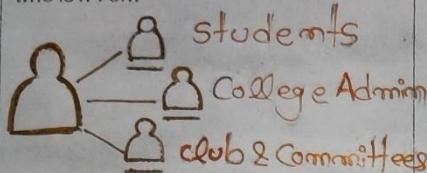 Students
College Admin
Club & Committees